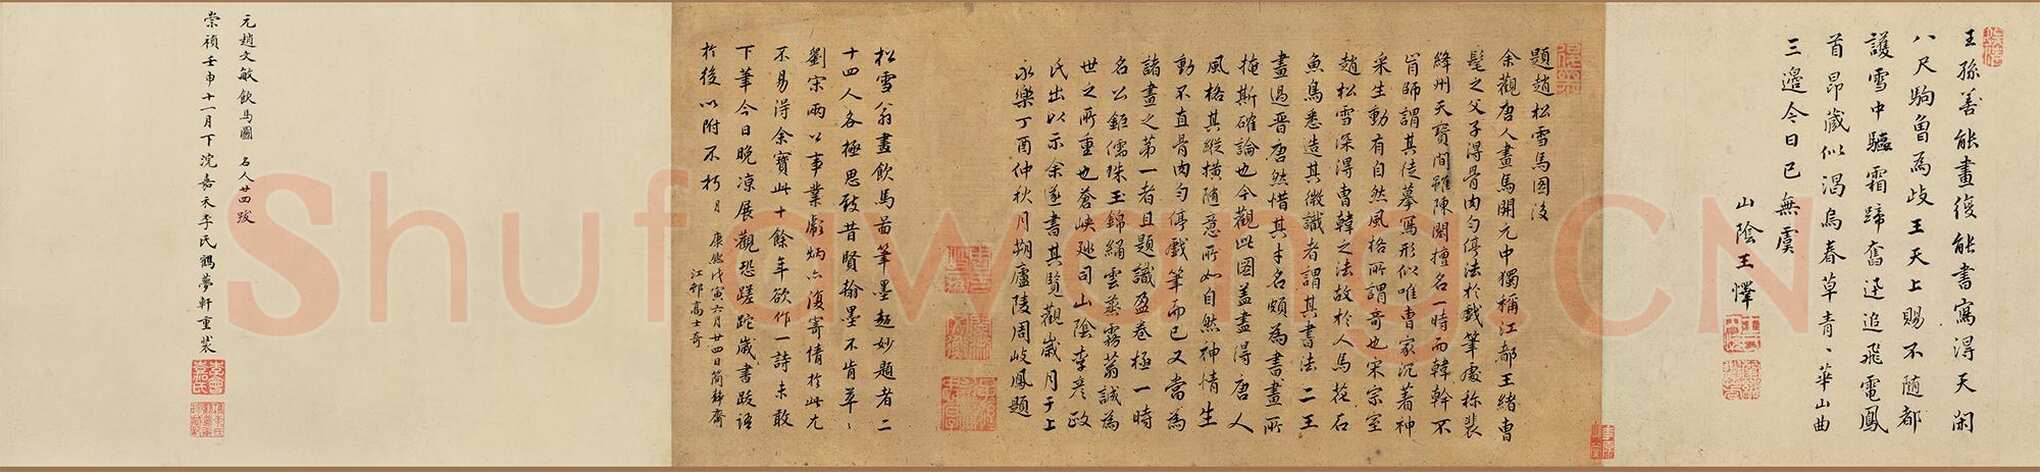 王孫善能畫復能書寫得天閑
八尺駒曾為歧王天上賜不隨都
護雪中驅霜蹄奮迅追飛電鳳
首昂藏似渴烏春草青々華山曲
三邊今日已無虞
山陰王懌
題趙松雪馬圖後
余觀唐人畫馬開元中獨稱江都王緒曹
髦之父子得骨肉勻停法於戲筆處称裴
絳州天寶間雖陳閎擅名一時而韓幹不
肯師謂其徒摹寫形似唯曹家沉著神
采生動有自然風格所謂奇也宋宗室
趙松雪深得曹韓之法故於人馬花石
魚鳥悉造其微識者謂其書法二王
畫過晉唐然惜其才名頗為書畫所
掩斯確論也今觀此圖蓋盡得唐人
風格其縱橫隨意所如自然神情生
動不直骨肉勻停戲筆而已又當為
諸畫之第一者且題識盈卷極一時
名公鉅儒珠玉錦綉雲蒸霧蓊誠為
世之所重也蒼峽廵司山陰李彦政
氏出以示余遂書其覽觀歲月于上
永樂丁酉仲秋月朔廬陵周岐鳳題
松雪翁畫飲馬啚筆墨超妙題者二
十四人各極思致昔賢翰墨不肯草々
劉宗兩以事業彪炳亦復寄情於此尤
不易得余寶此十餘年欲作一詩未敢
下筆今日晚凉展觀恐蹉跎歲書跋語
於後以附不朽月 康熙戊寅六月廿四日簡靜齋
江邨高士奇
元趙文敏飲馬圖 名人廿四跋
崇禎壬申十一月下浣嘉禾李氏鶴夢軒重裝
Shufawang.CN